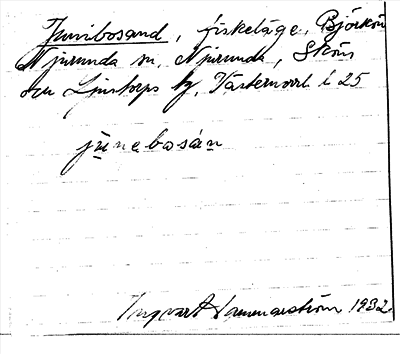 Junibosand, fiskeläge, Björkön
Njurunda sn, Njurunda, Sköns
och Ljustorps tg, Västernorrl. l. 25
jùnebosán
Ingvar Hammarström 1932.